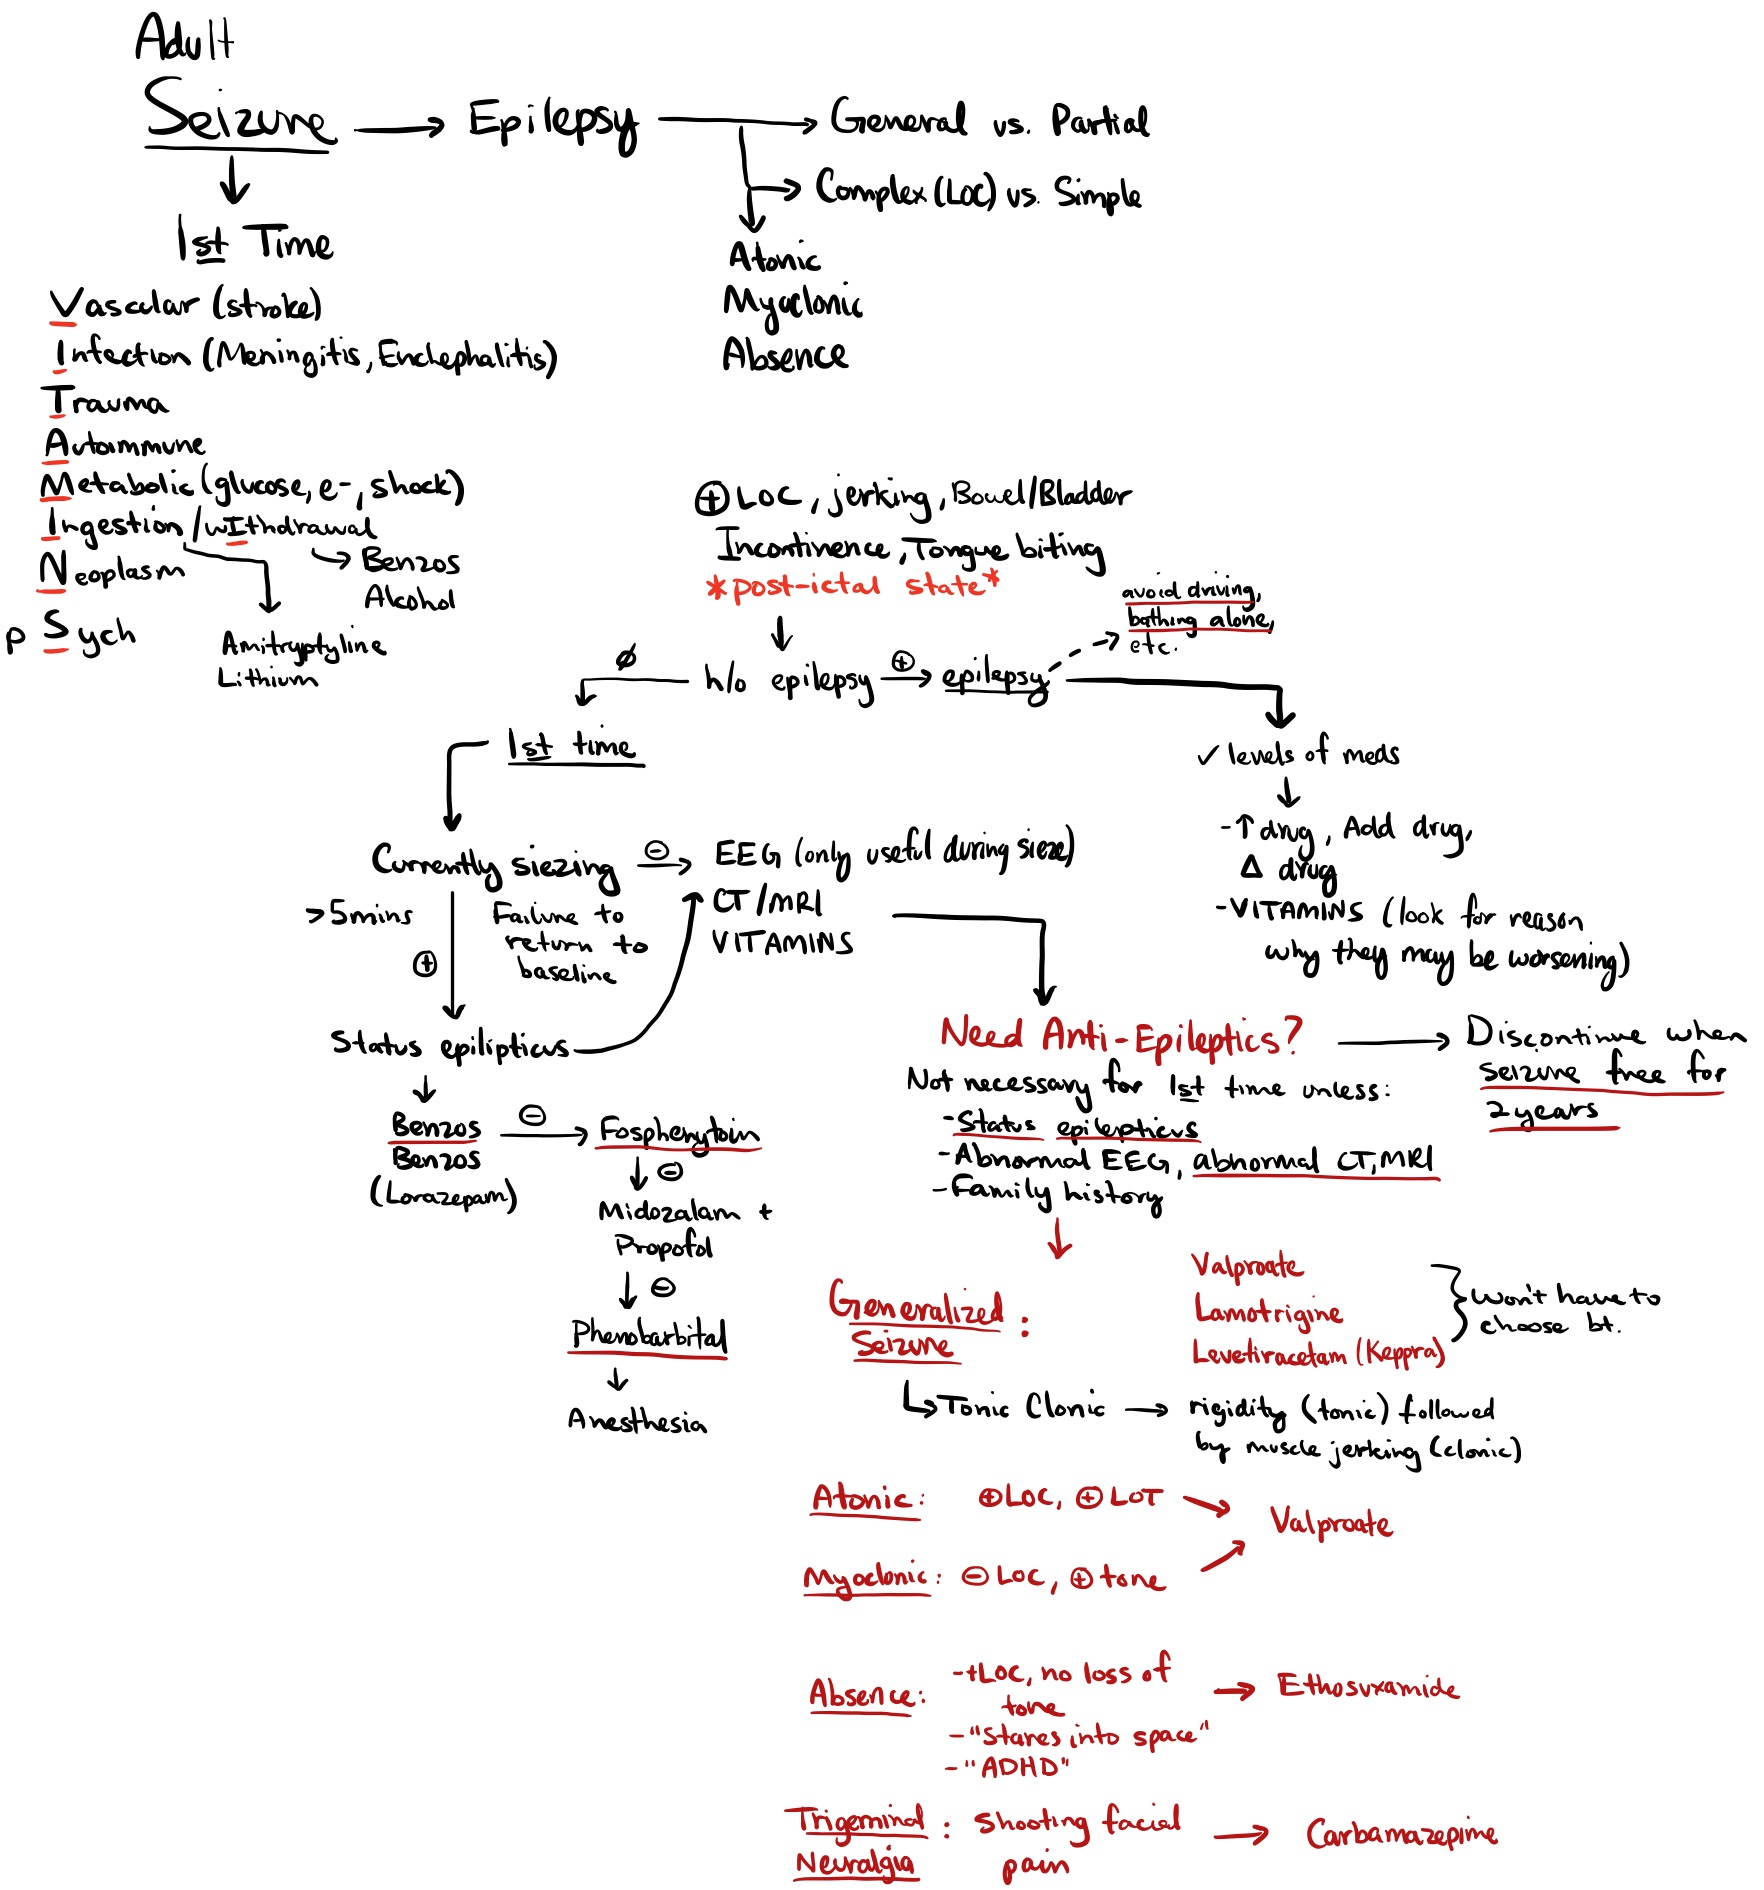 Adult
Seizure → Epilepsy → General vs. Partial
→ Complex (LOC) vs. Simple
Atonic
Myoclonic
Absence
1st Time
Vascular (stroke)
Infection (Meningitis, Enchephalitis)
Trauma
Autoimmune
Metabolic (glucose, e-, shock)
Ingestion / wIthdrawal
Benzos
Alcohol
Neoplasm
pSych
Amitryptyline
Lithium
⊕ LOC, jerking, Bowel/Bladder
Incontinence, Tongue biting
*post-ictal state*
avoid driving,
bathing alone,
etc.
∅ h/o epilepsy ⊕ → epilepsy
1st time
✓ levels of meds
- ↑ drug, Add drug,
Δ drug
- VITAMINS (look for reason
why they may be worsening)
Currently siezing ⊖ → EEG (only useful during sieze)
CT/MRI
VITAMINS
>5mins
⊕
Failure to
return to
baseline
Status epilipticus
Benzos ⊖ → Fosphenytoin
Benzos
(Lorazepam)
⊖
Midozalam +
Propofol
⊖
Phenobarbital
Anesthesia
Need Anti-Epileptics? → Discontinue when
seizure free for
2 years
Not necessary for 1st time unless:
- Status epilepticus
- Abnormal EEG, abnormal CT, MRI
- Family history
Generalized
Seizure :
Valproate
Lamotrigine
Levetiracetam (Keppra)
won't have to
choose bt.
Tonic Clonic → rigidity (tonic) followed
by muscle jerking (clonic)
Atonic: ⊕ LOC, ⊕ LOT
Valproate
Myoclonic: ⊖ LOC, ⊕ tone
Absence: - +LOC, no loss of
tone
- "Stares into space"
- "ADHD"
→ Ethosuxamide
Trigeminal
Neuralgia : Shooting facial
pain
→ Carbamazepime